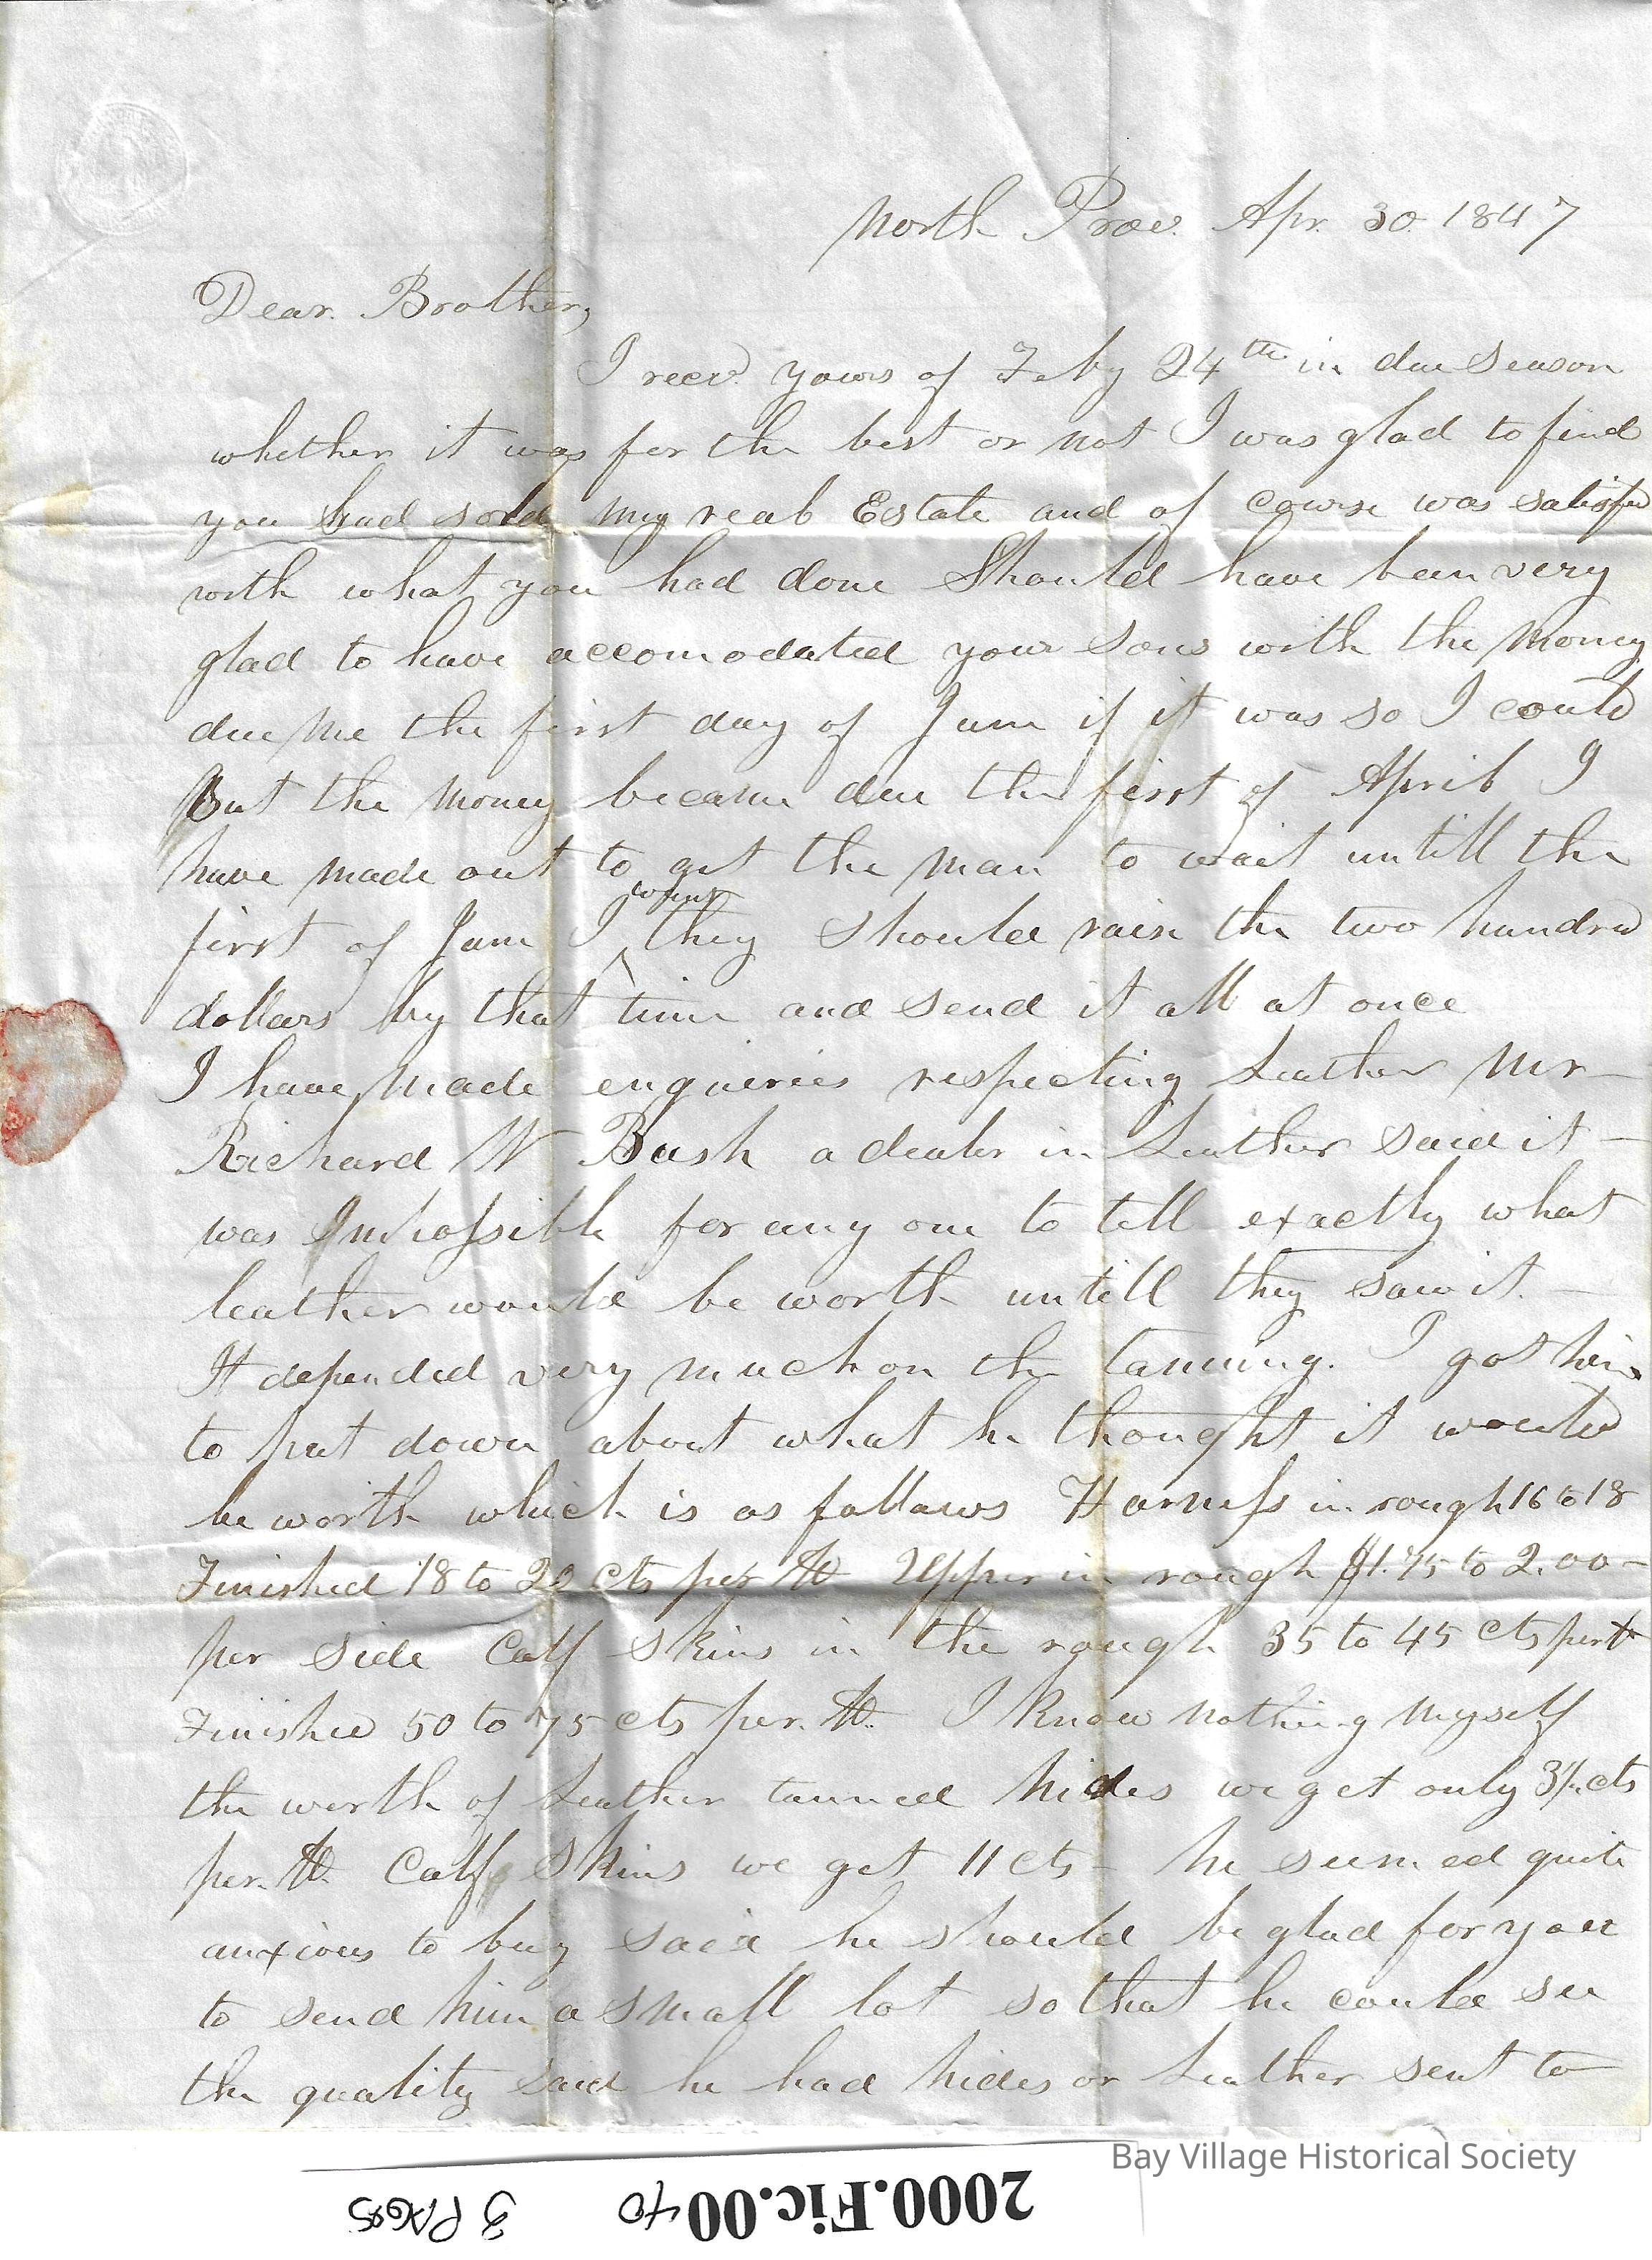 North Prov. Apr. 30. 1847
Dear Brother,
I recd. yours of Feby 24th in due Season
whether it was for the best or not I was glad to find
you had sold my real Estate and of course was satisfied
with what you had done Should have been very
glad to have accomodated your sons with the money
due me the first day of June if it was so I could
But the money became due the first of April I
have made out to get the man to wait untill the
first of June I want they should raise the two hundred
dollars by that time and send it all at once
I have made enquiries respecting Leather Mr
Richard W Bush a dealer in Leather said it
was Impossible for any one to tell exactly what
leather would be worth untill they saw it.
It depended very much on the tanning. I got him
to put down about what he thought it would
be worth which is as follows Harness in rough 16 to 18
Finished 18 to 22 cts per lb Upper in rough $1.75 to 2.00
per side Calf Skins in the rough 35 to 45 cts per lb
Finished 50 to 75 cts per. lb. I know nothing myself
the worth of Leather tanned hides we get only 3½ cts
per. lb. Calf Skins we get 11 cts he seemed quite
anxious to buy said he should be glad for you
to send him a small lot so that he could see
the quality said he had hides or Leather sent to
Bay Village Historical Society
2000.Fic.0040
3 PAGES